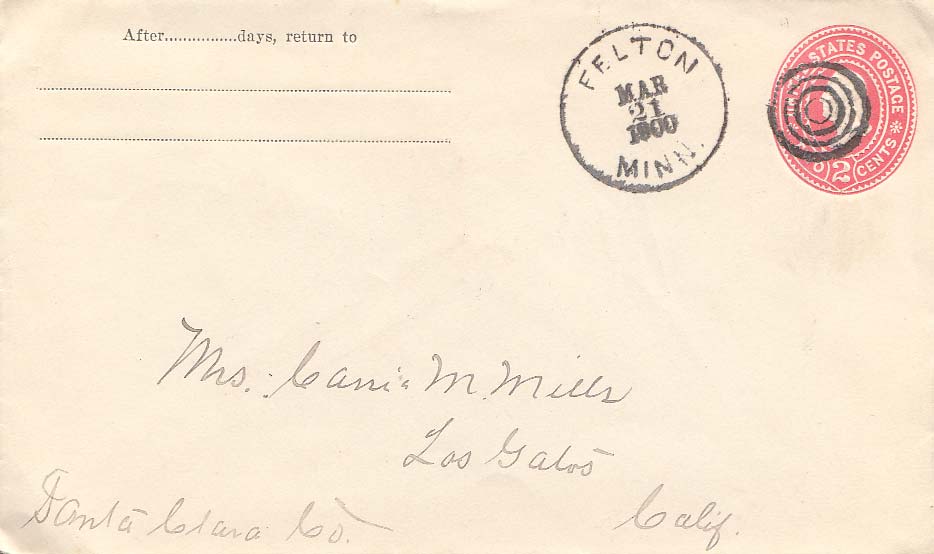 After...............days, return to
FELTON
MAR
21
1900
MINN.
STATES POSTAGE
2 CENTS
Mrs. Carrie M. Mills
Los Gatos
Santa Clara Co. Calif.